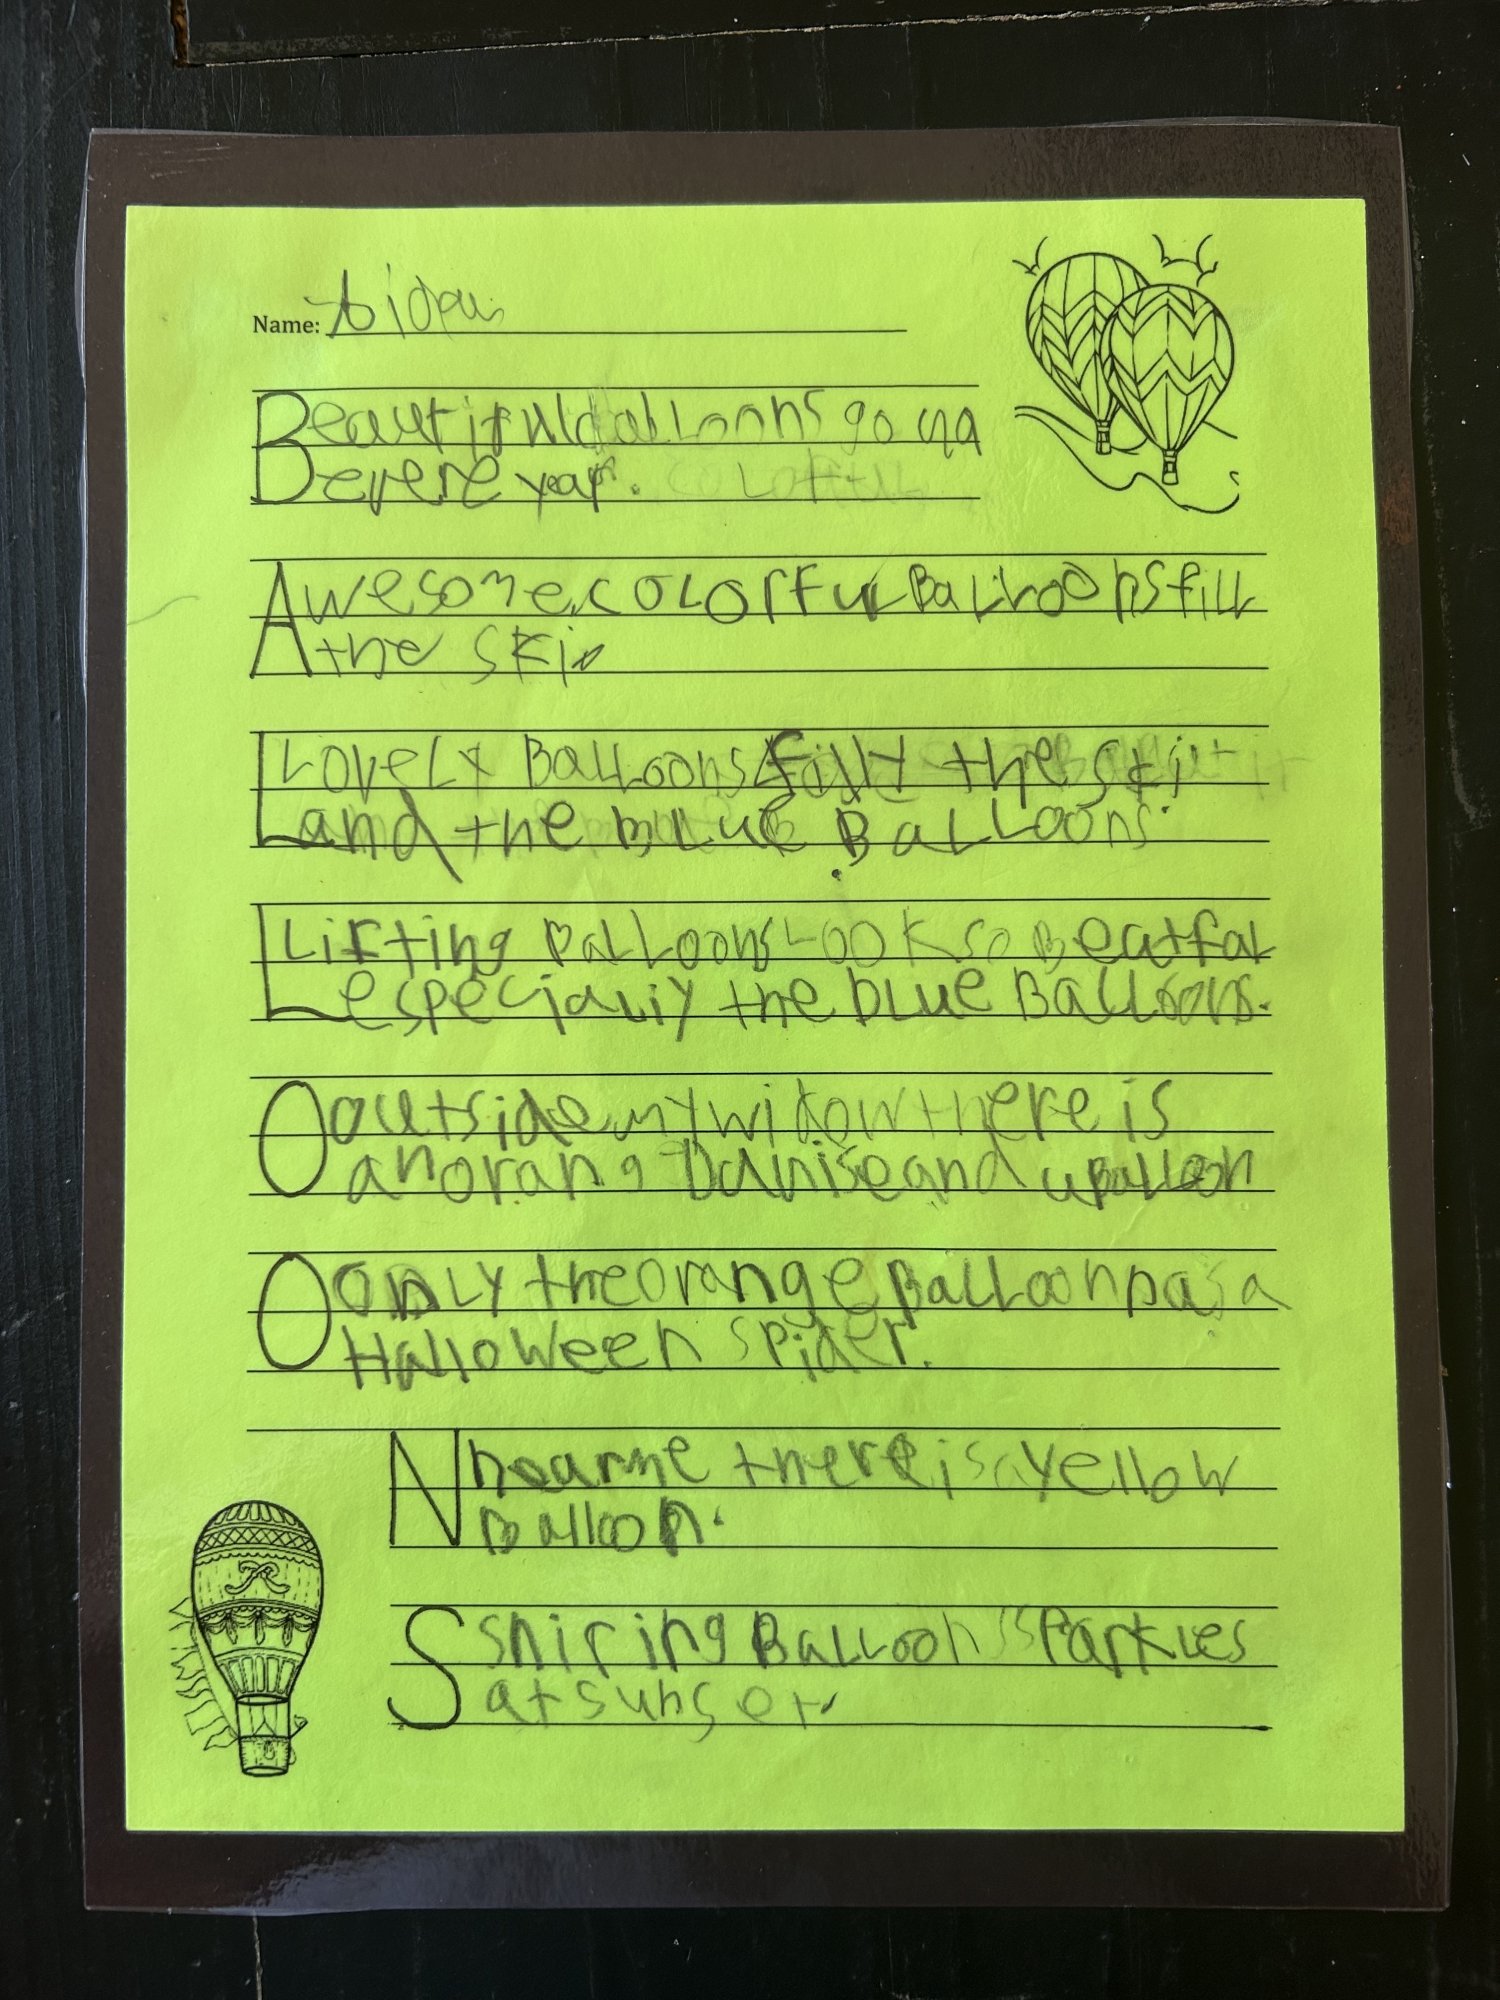 Name: Aidan
Beautiful balloons go
evere year.
Awesome colorful Balloons fill
the ski.
L Lovely Balloons fill the ski
and the blue Balloons.
L Lifting balloons Look so Beatfal
especialiy the blue Balloons.
O outside my widow there is
an orang and a Balloon
O only the orange Balloon a
Halloween spider.
N near me there is a yellow
Balloon.
S shiring Balloons sparkles
at sunset.